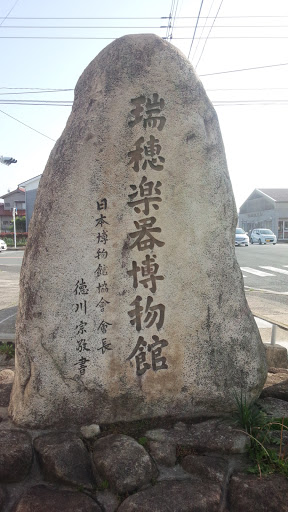 瑞穂楽器博物館
日本博物館協会会長
徳川宗敬書